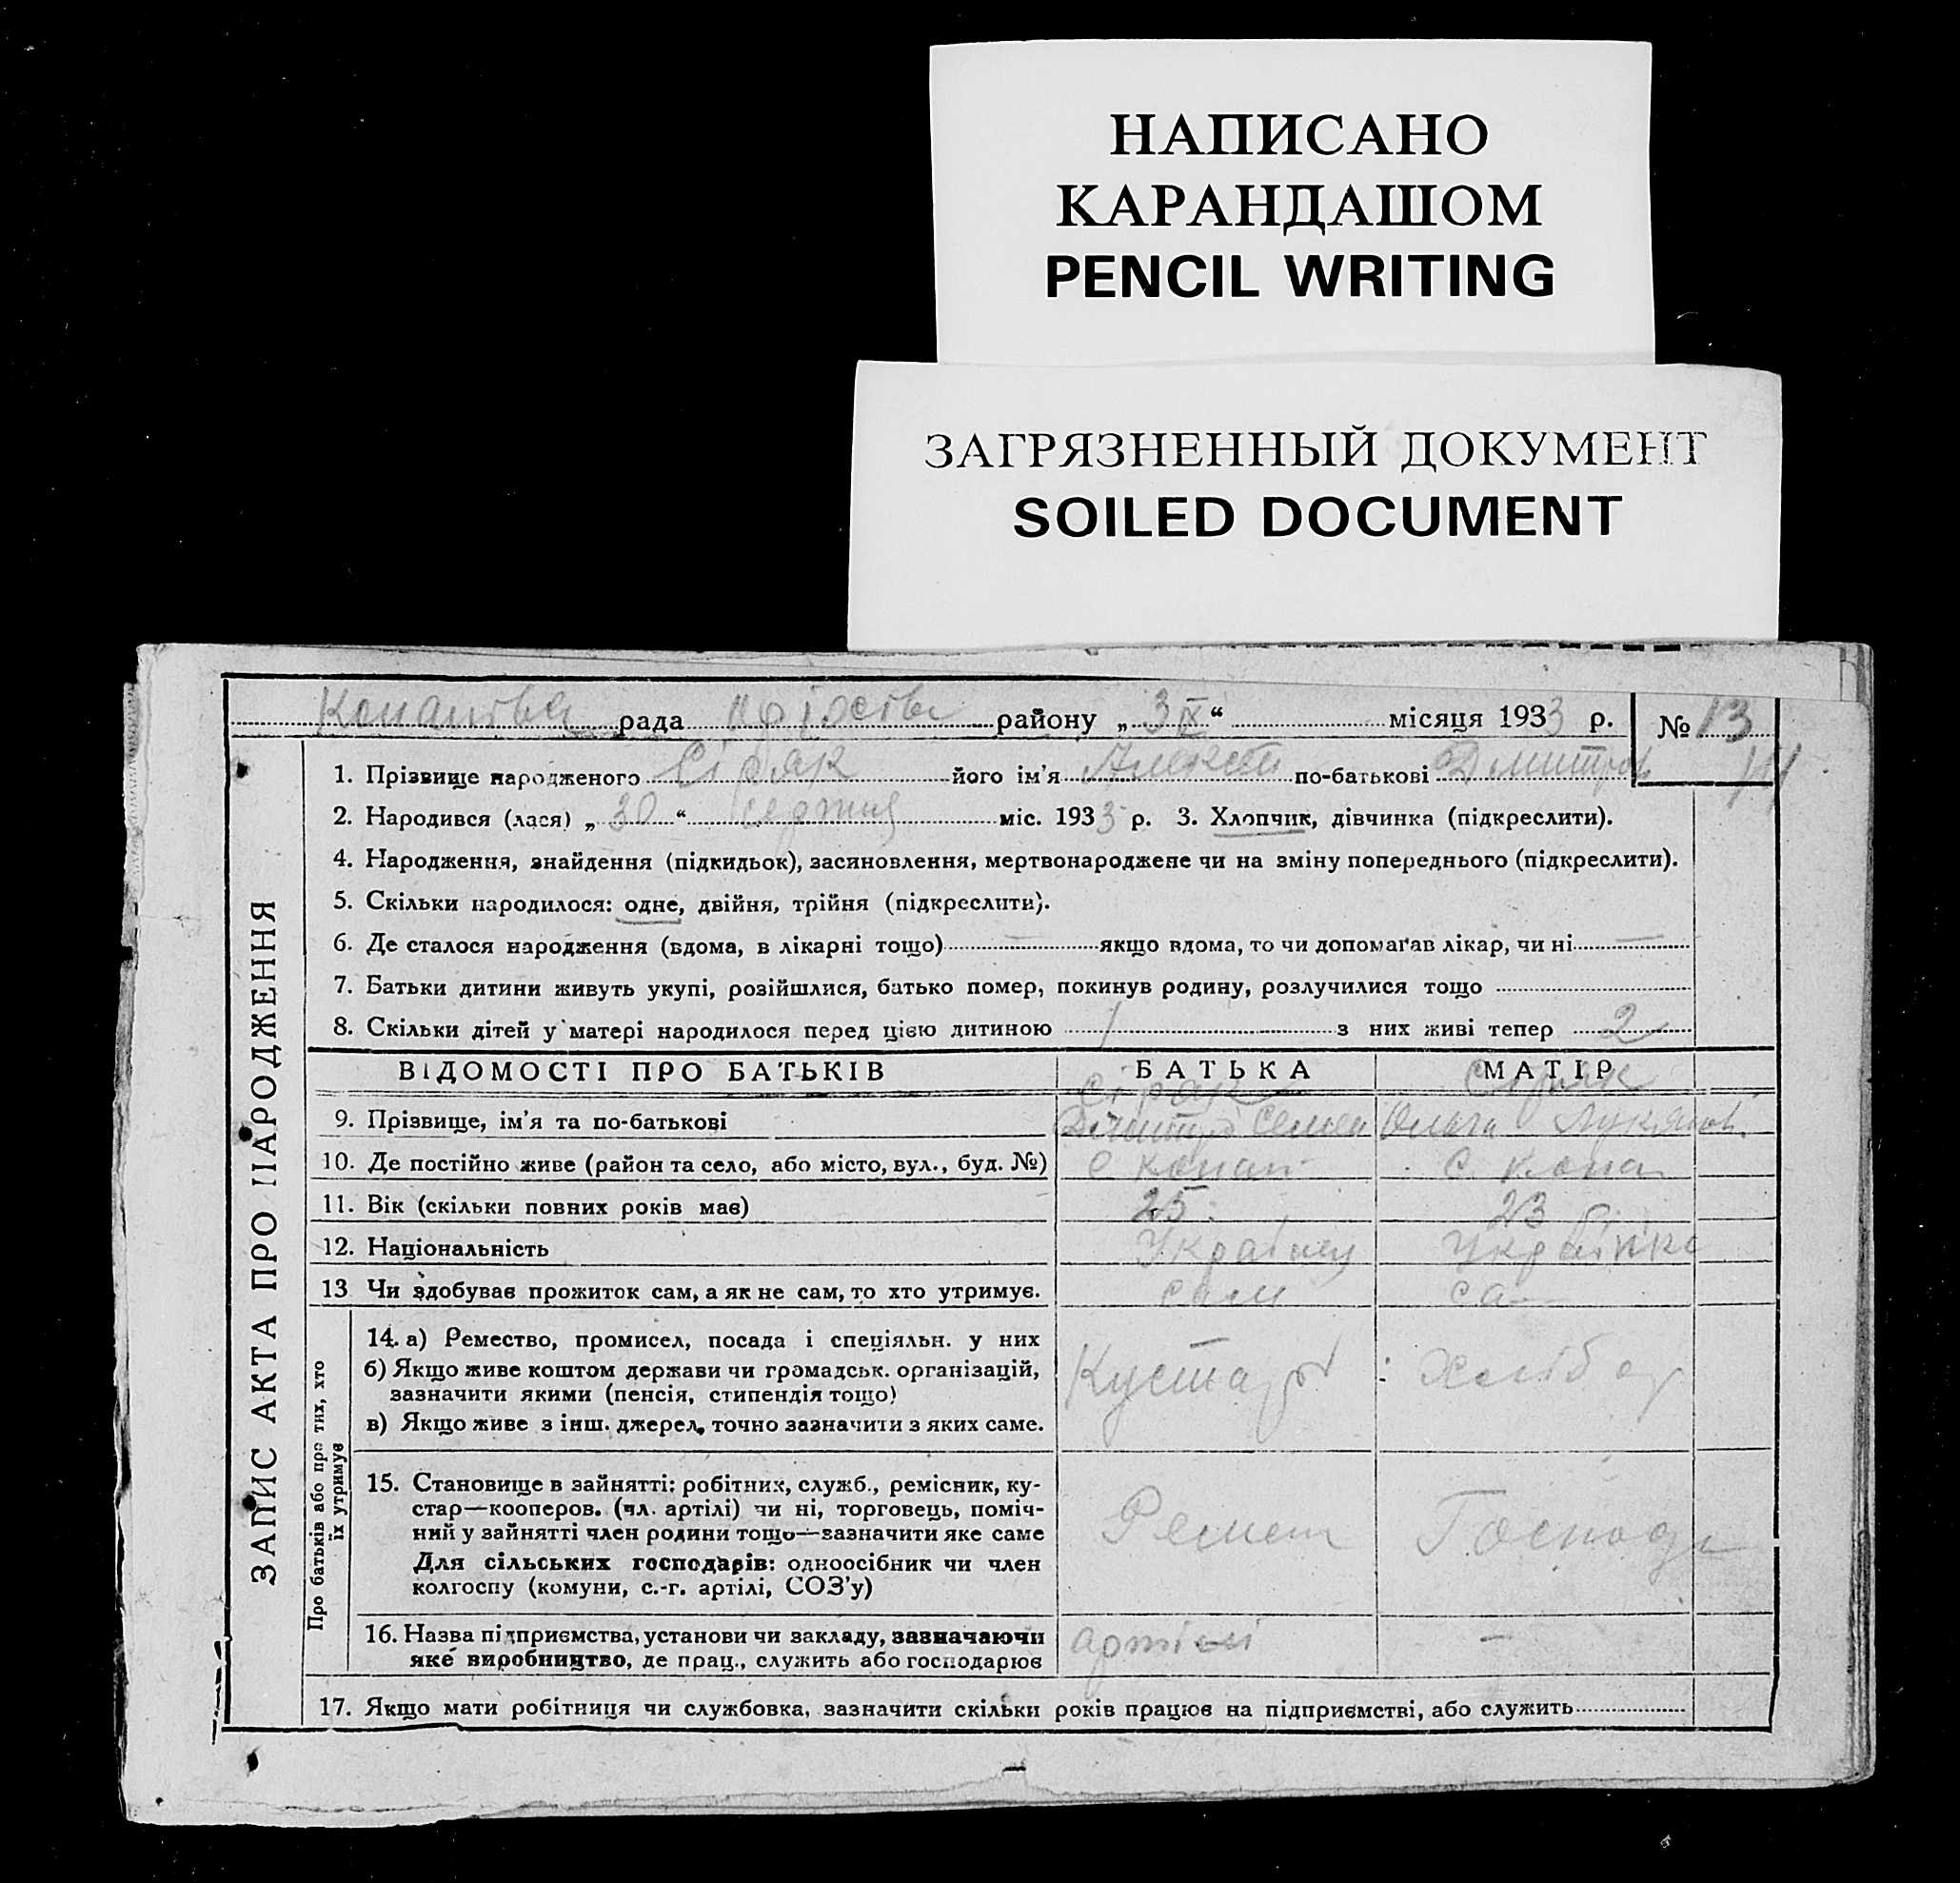 НАПИСАНО
КАРАНДАШОМ
PENCIL WRITING
ЗАГРЯЗНЕННЫЙ ДОКУМЕНТ
SOILED DOCUMENT
рада району „ 3 IX “ місяця 1933 р. № 13
1. Прізвище народженого Сіряк його ім'я по-батькові Дмитров
2. Народився (лася) „ 30 “ серпня міс. 1933 р. 3. Хлопчик, дівчинка (підкреслити).
4. Народження, знайдення (підкидьок), засиновлення, мертвонароджене чи на зміну попереднього (підкреслити).
5. Скільки народилося: одне, двійня, трійня (підкреслити).
6. Де сталося народження (вдома, в лікарні тощо) — якщо вдома, то чи допомагав лікар, чи ні —
7. Батьки дитини живуть укупі, розійшлися, батько помер, покинув родину, розлучилися тощо
8. Скільки дітей у матері народилося перед цією дитиною 1 з них живі тепер 2
ВІДОМОСТІ ПРО БАТЬКІВ БАТЬКА МАТІР
Сіряк Сіряк
9. Прізвище, ім'я та по-батькові Дмитро Семен Ольга Лукянов.
10. Де постійно живе (район та село, або місто, вул., буд. №) с Копан с. Копа
11. Вік (скільки повних років має) 25 23
12. Національність Українец Українка
13 Чи здобуває прожиток сам, а як не сам, то хто утримує. сам са
14. а) Ремество, промисел, посада і спеціяльн. у них
б) Якщо живе коштом держави чи громадськ. організацій,
зазначити якими (пенсія, стипендія тощо)
Кустарь хлібор
в) Якщо живе з інш. джерел, точно зазначити з яких саме.
15. Становище в зайнятті: робітник, служб., ремісник, ку-
стар—кооперов. (чл. артілі) чи ні, торговець, поміч-
ний у зайнятті член родини тощо—зазначити яке саме
Ремест Господ
Для сільських господарів: одноосібник чи член
колгоспу (комуни, с.-г. артілі, СОЗ'у)
16. Назва підприємства, установи чи закладу, зазначаючи
яке виробництво, де прац., служить або господарює
артілі —
17. Якщо мати робітниця чи службовка, зазначити скільки років працює на підприємстві, або служить
ЗАПИС АКТА ПРО НАРОДЖЕННЯ
Про батьків або про тих, хто
їх утримує